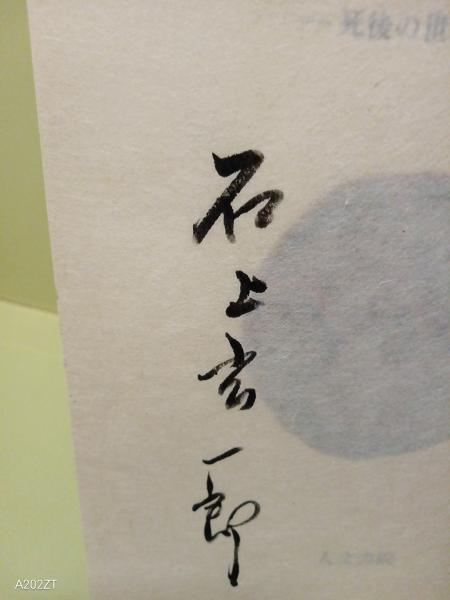 死後の世
石上玄一郎
人文書院
A202ZT